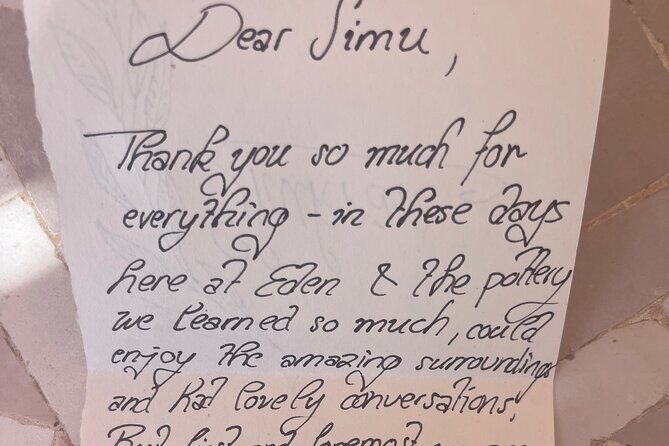 Dear Simu,
Thank you so much for
everything - in these days
here at Eden & the pottery
we learned so much, could
enjoy the amazing surroundings
and had lovely conversations.
But first and foremost